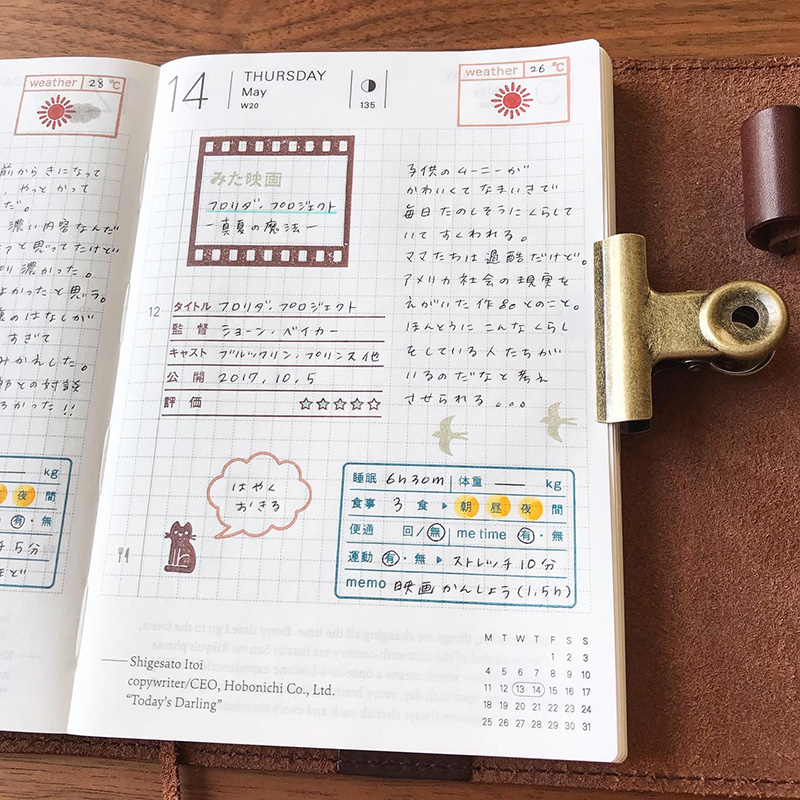 weather 28 ℃
前からきになって
、やっとかって
だ。
濃い内容なんだ
と思ってたけど
濃かった。
よかったと思う。
のはなしが
すぎて
みかえした。
との対談
かった!!
kg
夜 間
有・無
5分
ほど
14 THURSDAY
May
W20
135
weather 26 ℃
みた映画
フロリダ・プロジェクト
ー真夏の魔法ー
12
タイトル フロリダ・プロジェクト
監督 ショーン・ベイカー
キャスト ブルックリン・プリンス他
公開 2017.10.5
評価 ☆☆☆☆☆
子供のムーニーが
かわいくてなまいきで
毎日たのしそうにくらして
いてすくわれる。
ママたちは過酷だけど。
アメリカ社会の現実を
えがいた作品とのこと。
ほんとうにこんなくらし
をしている人たちが
いるのだなと考え
させられる...
はやく
おきる
睡眠 6h30m 体重 — kg
食事 3食 ▶ 朝 昼 夜 間
便通 回/無 me time 有・無
運動 有・無 ▶ ストレッチ10分
memo 映画かんしょう(1.5h)
—Shigesato Itoi
copywriter/CEO, Hobonichi Co., Ltd.
"Today's Darling"
M T W T F S S
1 2 3
4 5 6 7 8 9 10
11 12 13 14 15 16 17
18 19 20 21 22 23 24
25 26 27 28 29 30 31